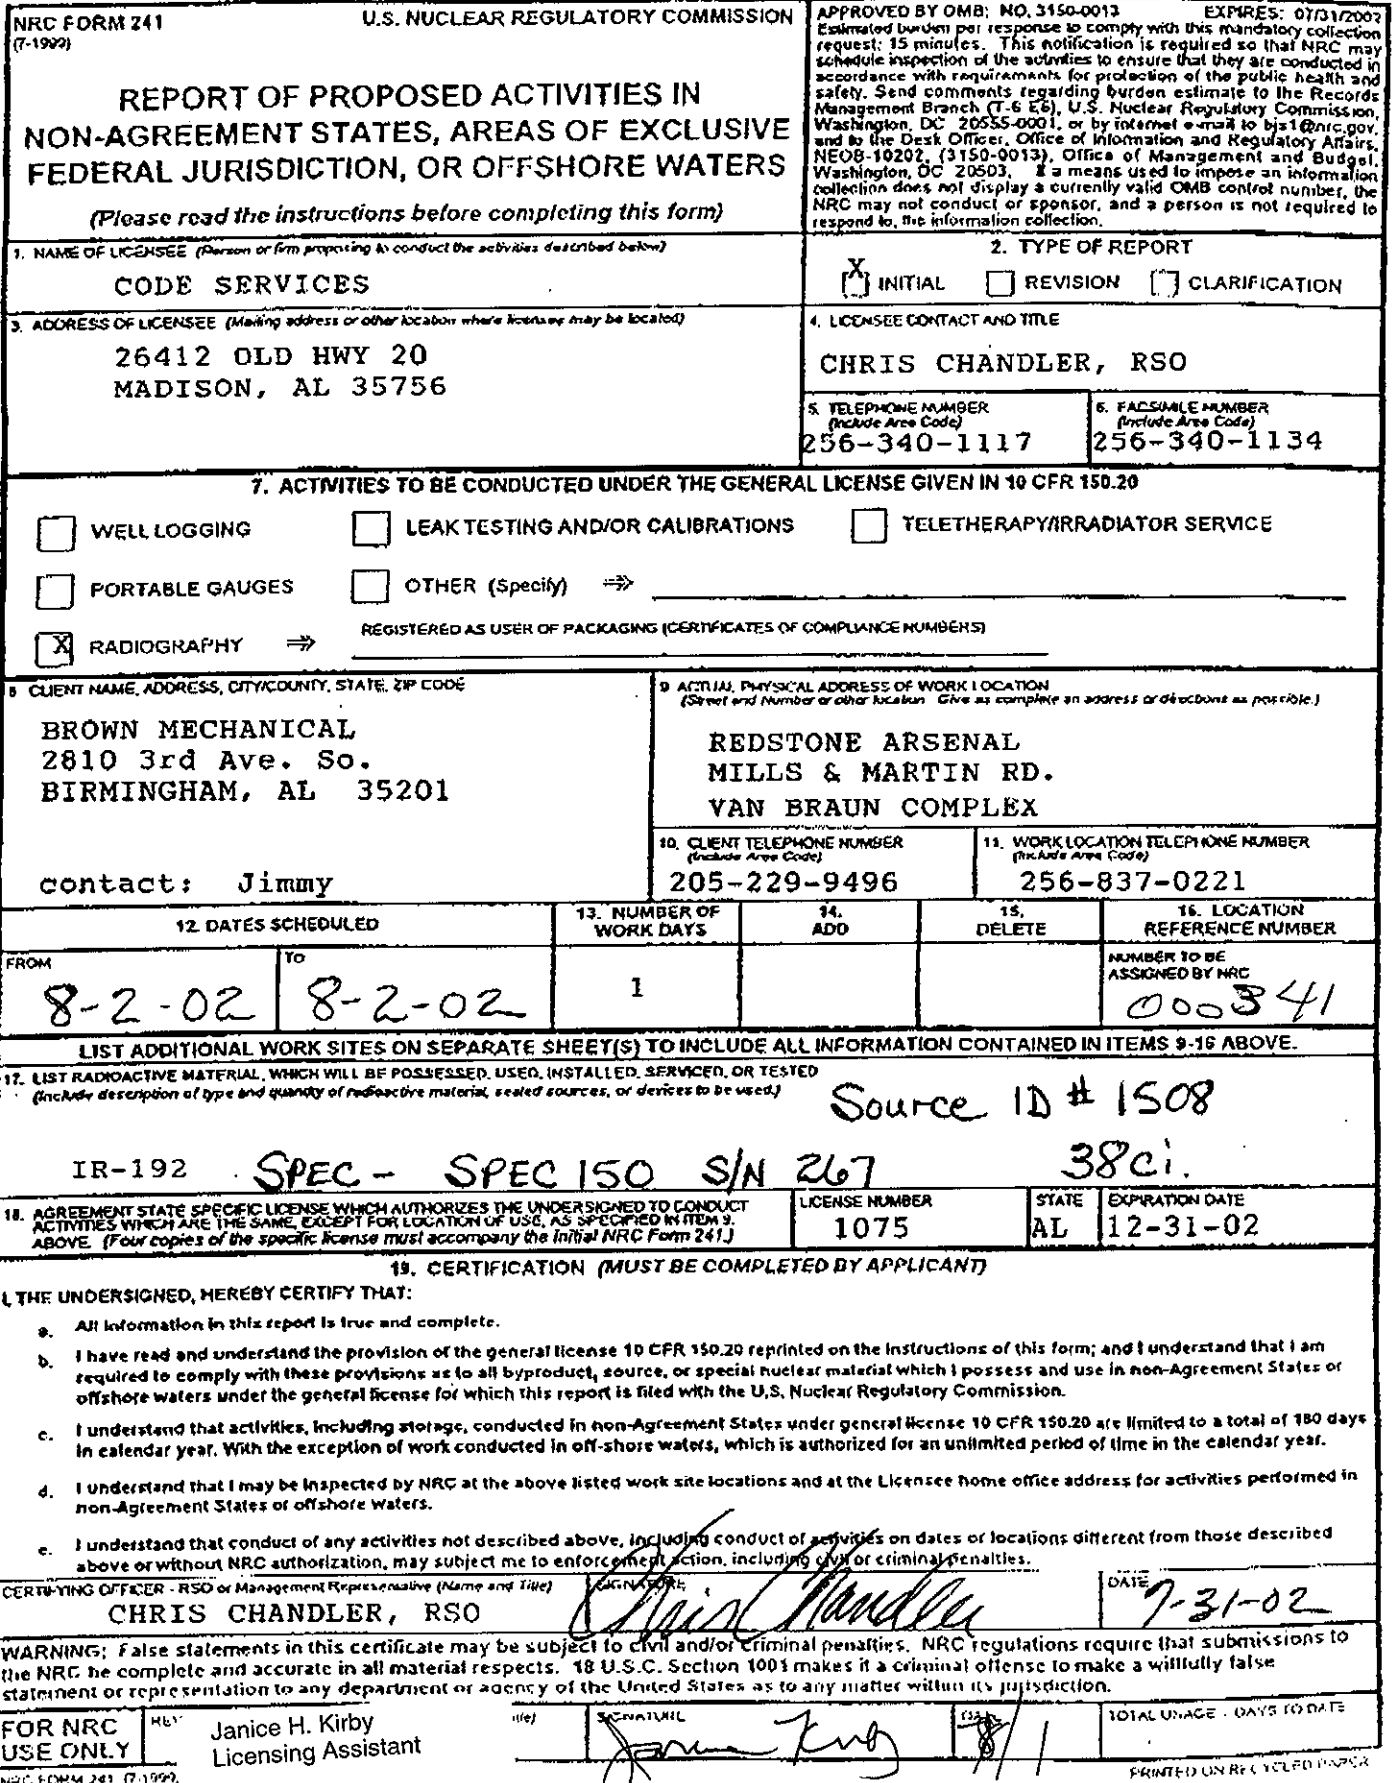 NRC FORM 241
(7-1999)
U.S. NUCLEAR REGULATORY COMMISSION
REPORT OF PROPOSED ACTIVITIES IN
NON-AGREEMENT STATES, AREAS OF EXCLUSIVE
FEDERAL JURISDICTION, OR OFFSHORE WATERS
(Please read the instructions before completing this form)
APPROVED BY OMB: NO. 3150-0013 EXPIRES: 07/31/2002
Estimated burden per response to comply with this mandatory collection
request: 15 minutes. This notification is required so that NRC may
schedule inspection of the activities to ensure that they are conducted in
accordance with requirements for protection of the public health and
safety. Send comments regarding burden estimate to the Records
Management Branch (T-6 E6), U.S. Nuclear Regulatory Commission,
Washington, DC 20555-0001, or by internet e-mail to bjs1@nrc.gov,
and to the Desk Officer, Office of Information and Regulatory Affairs,
NEOB-10202, (3150-0013), Office of Management and Budget,
Washington, DC 20503. If a means used to impose an information
collection does not display a currently valid OMB control number, the
NRC may not conduct or sponsor, and a person is not required to
respond to, the information collection.
1. NAME OF LICENSEE (Person or firm proposing to conduct the activities described below)
CODE SERVICES
2. TYPE OF REPORT
X INITIAL REVISION CLARIFICATION
3. ADDRESS OF LICENSEE (Mailing address or other location where licensee may be located)
26412 OLD HWY 20
MADISON, AL 35756
4. LICENSEE CONTACT AND TITLE
CHRIS CHANDLER, RSO
5. TELEPHONE NUMBER
(Include Area Code)
256-340-1117
6. FACSIMILE NUMBER
(Include Area Code)
256-340-1134
7. ACTIVITIES TO BE CONDUCTED UNDER THE GENERAL LICENSE GIVEN IN 10 CFR 150.20
WELL LOGGING LEAK TESTING AND/OR CALIBRATIONS TELETHERAPY/IRRADIATOR SERVICE
PORTABLE GAUGES OTHER (Specify) ⇒
X RADIOGRAPHY ⇒ REGISTERED AS USER OF PACKAGING (CERTIFICATES OF COMPLIANCE NUMBERS)
8 CLIENT NAME, ADDRESS, CITY/COUNTY, STATE, ZIP CODE
BROWN MECHANICAL
2810 3rd Ave. So.
BIRMINGHAM, AL 35201
contact: Jimmy
9 ACTUAL PHYSICAL ADDRESS OF WORK LOCATION
(Street and Number or other location. Give as complete an address or directions as possible.)
REDSTONE ARSENAL
MILLS & MARTIN RD.
VAN BRAUN COMPLEX
10. CLIENT TELEPHONE NUMBER
(Include Area Code)
205-229-9496
11. WORK LOCATION TELEPHONE NUMBER
(Include Area Code)
256-837-0221
12. DATES SCHEDULED
13. NUMBER OF
WORK DAYS
14.
ADD
15.
DELETE
16. LOCATION
REFERENCE NUMBER
FROM
8-2-02
TO
8-2-02
1
NUMBER TO BE
ASSIGNED BY NRC
000341
LIST ADDITIONAL WORK SITES ON SEPARATE SHEET(S) TO INCLUDE ALL INFORMATION CONTAINED IN ITEMS 9-16 ABOVE.
17. LIST RADIOACTIVE MATERIAL, WHICH WILL BE POSSESSED, USED, INSTALLED, SERVICED, OR TESTED
(Include description of type and quantity of radioactive material, sealed sources, or devices to be used.)
Source ID # 1508
IR-192 SPEC - SPEC 150 S/N 267 38ci.
18. AGREEMENT STATE SPECIFIC LICENSE WHICH AUTHORIZES THE UNDERSIGNED TO CONDUCT
ACTIVITIES WHICH ARE THE SAME, EXCEPT FOR LOCATION OF USE, AS SPECIFIED IN ITEM 9.
ABOVE. (Four copies of the specific license must accompany the initial NRC Form 241.)
LICENSE NUMBER
1075
STATE
AL
EXPIRATION DATE
12-31-02
19. CERTIFICATION (MUST BE COMPLETED BY APPLICANT)
I, THE UNDERSIGNED, HEREBY CERTIFY THAT:
a. All information in this report is true and complete.
b. I have read and understand the provision of the general license 10 CFR 150.20 reprinted on the instructions of this form; and I understand that I am
required to comply with these provisions as to all byproduct, source, or special nuclear material which I possess and use in non-Agreement States or
offshore waters under the general license for which this report is filed with the U.S. Nuclear Regulatory Commission.
c. I understand that activities, including storage, conducted in non-Agreement States under general license 10 CFR 150.20 are limited to a total of 180 days
in calendar year. With the exception of work conducted in off-shore waters, which is authorized for an unlimited period of time in the calendar year.
d. I understand that I may be inspected by NRC at the above listed work site locations and at the Licensee home office address for activities performed in
non-Agreement States or offshore waters.
e. I understand that conduct of any activities not described above, including conduct of activities on dates or locations different from those described
above or without NRC authorization, may subject me to enforcement action, including civil or criminal penalties.
CERTIFYING OFFICER - RSO or Management Representative (Name and Title)
CHRIS CHANDLER, RSO
SIGNATURE
Chris Chandler
DATE
7-31-02
WARNING: False statements in this certificate may be subject to civil and/or criminal penalties. NRC regulations require that submissions to
the NRC be complete and accurate in all material respects. 18 U.S.C. Section 1001 makes it a criminal offense to make a willfully false
statement or representation to any department or agency of the United States as to any matter within its jurisdiction.
FOR NRC
USE ONLY
Janice H. Kirby
Licensing Assistant
SIGNATURE
Janice Kirby
DATE
8/1
TOTAL USAGE - DAYS TO DATE
NRC FORM 241 (7-1999)
PRINTED ON RECYCLED PAPER